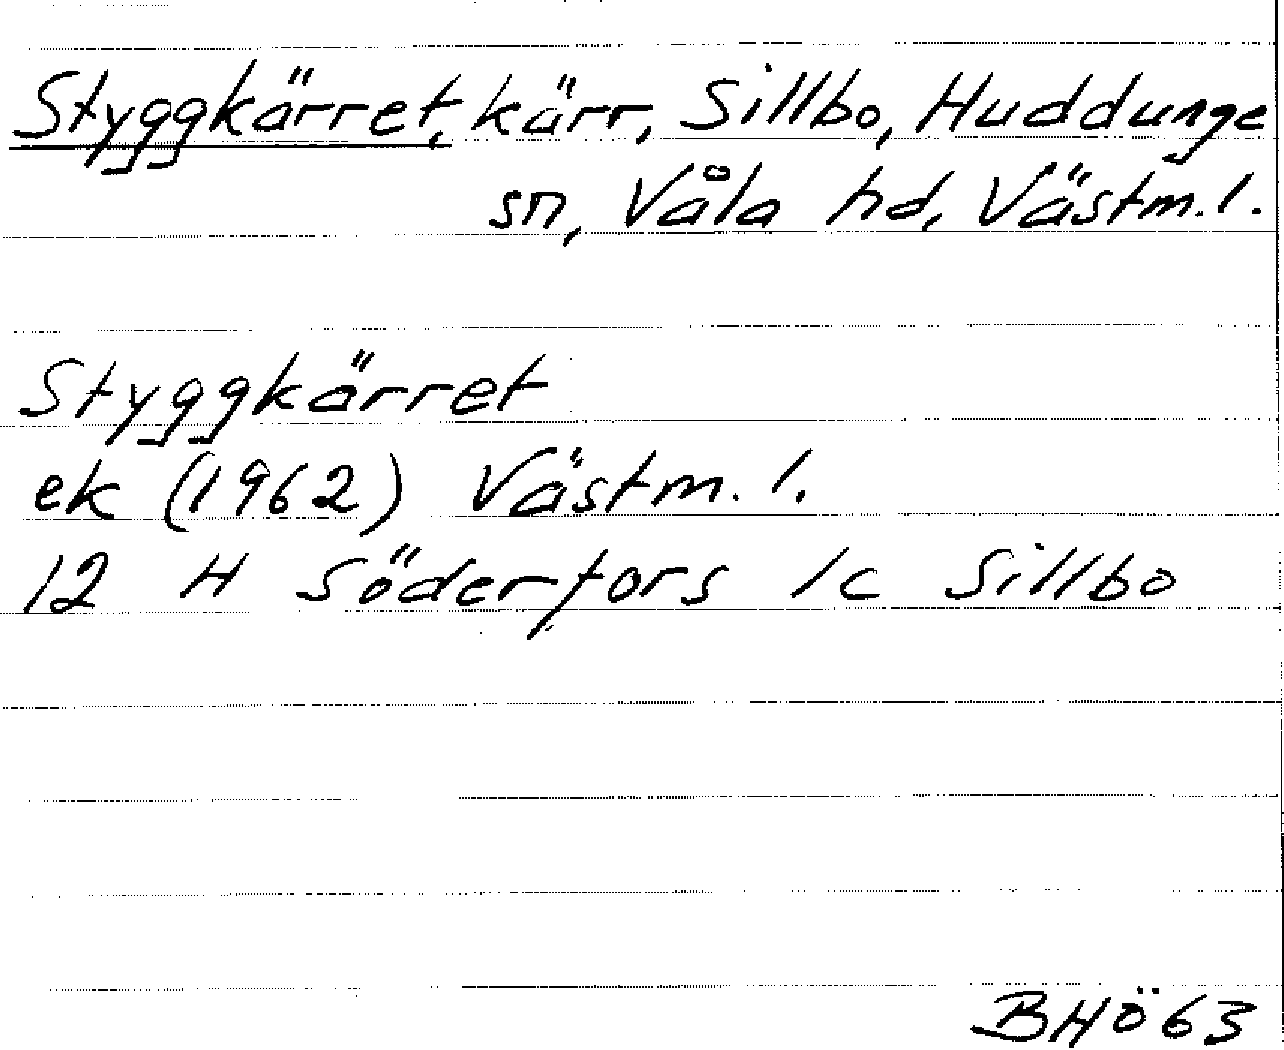 Styggkärret, kärr, Sillbo, Huddunge
sn, Våla hd, Västm.l.
Styggkärret
ek (1962) Västm.l.
12 H Söderfors 1c Sillbo
BHÖ63